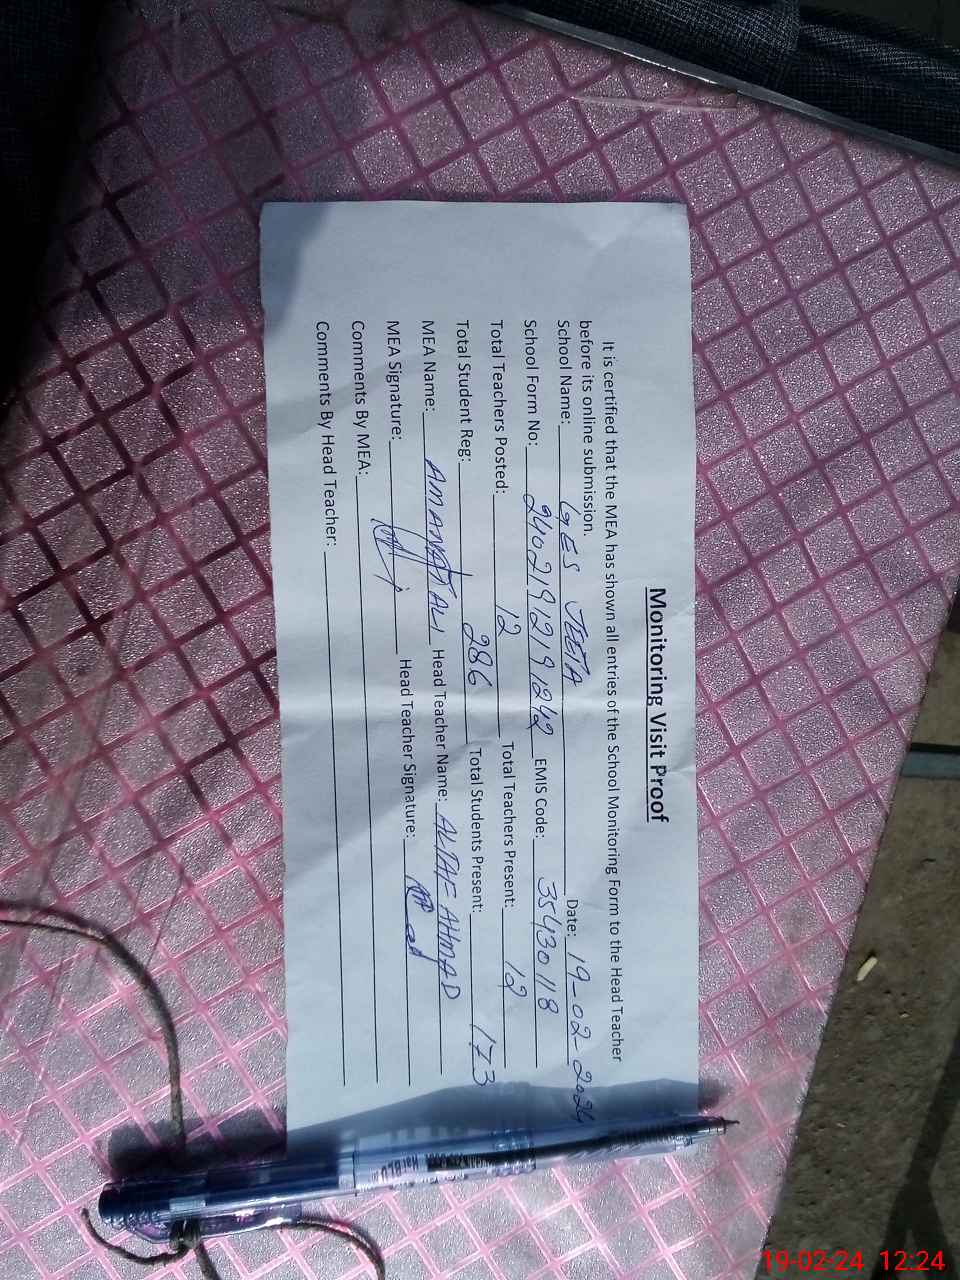 Monitoring Visit Proof
It is certified that the MEA has shown all entries of the School Monitoring Form to the Head Teacher
before its online submission.
School Name: GES JEETA Date: 19-02-2024
School Form No: 24021912191242 EMIS Code: 35430118
Total Teachers Posted: 12 Total Teachers Present: 12
Total Student Reg: 286 Total Students Present: 173
MEA Name: AMANAT ALI Head Teacher Name: ALTAF AHMAD
MEA Signature: Head Teacher Signature:
Comments By MEA:
Comments By Head Teacher:
19-02-24 12:24